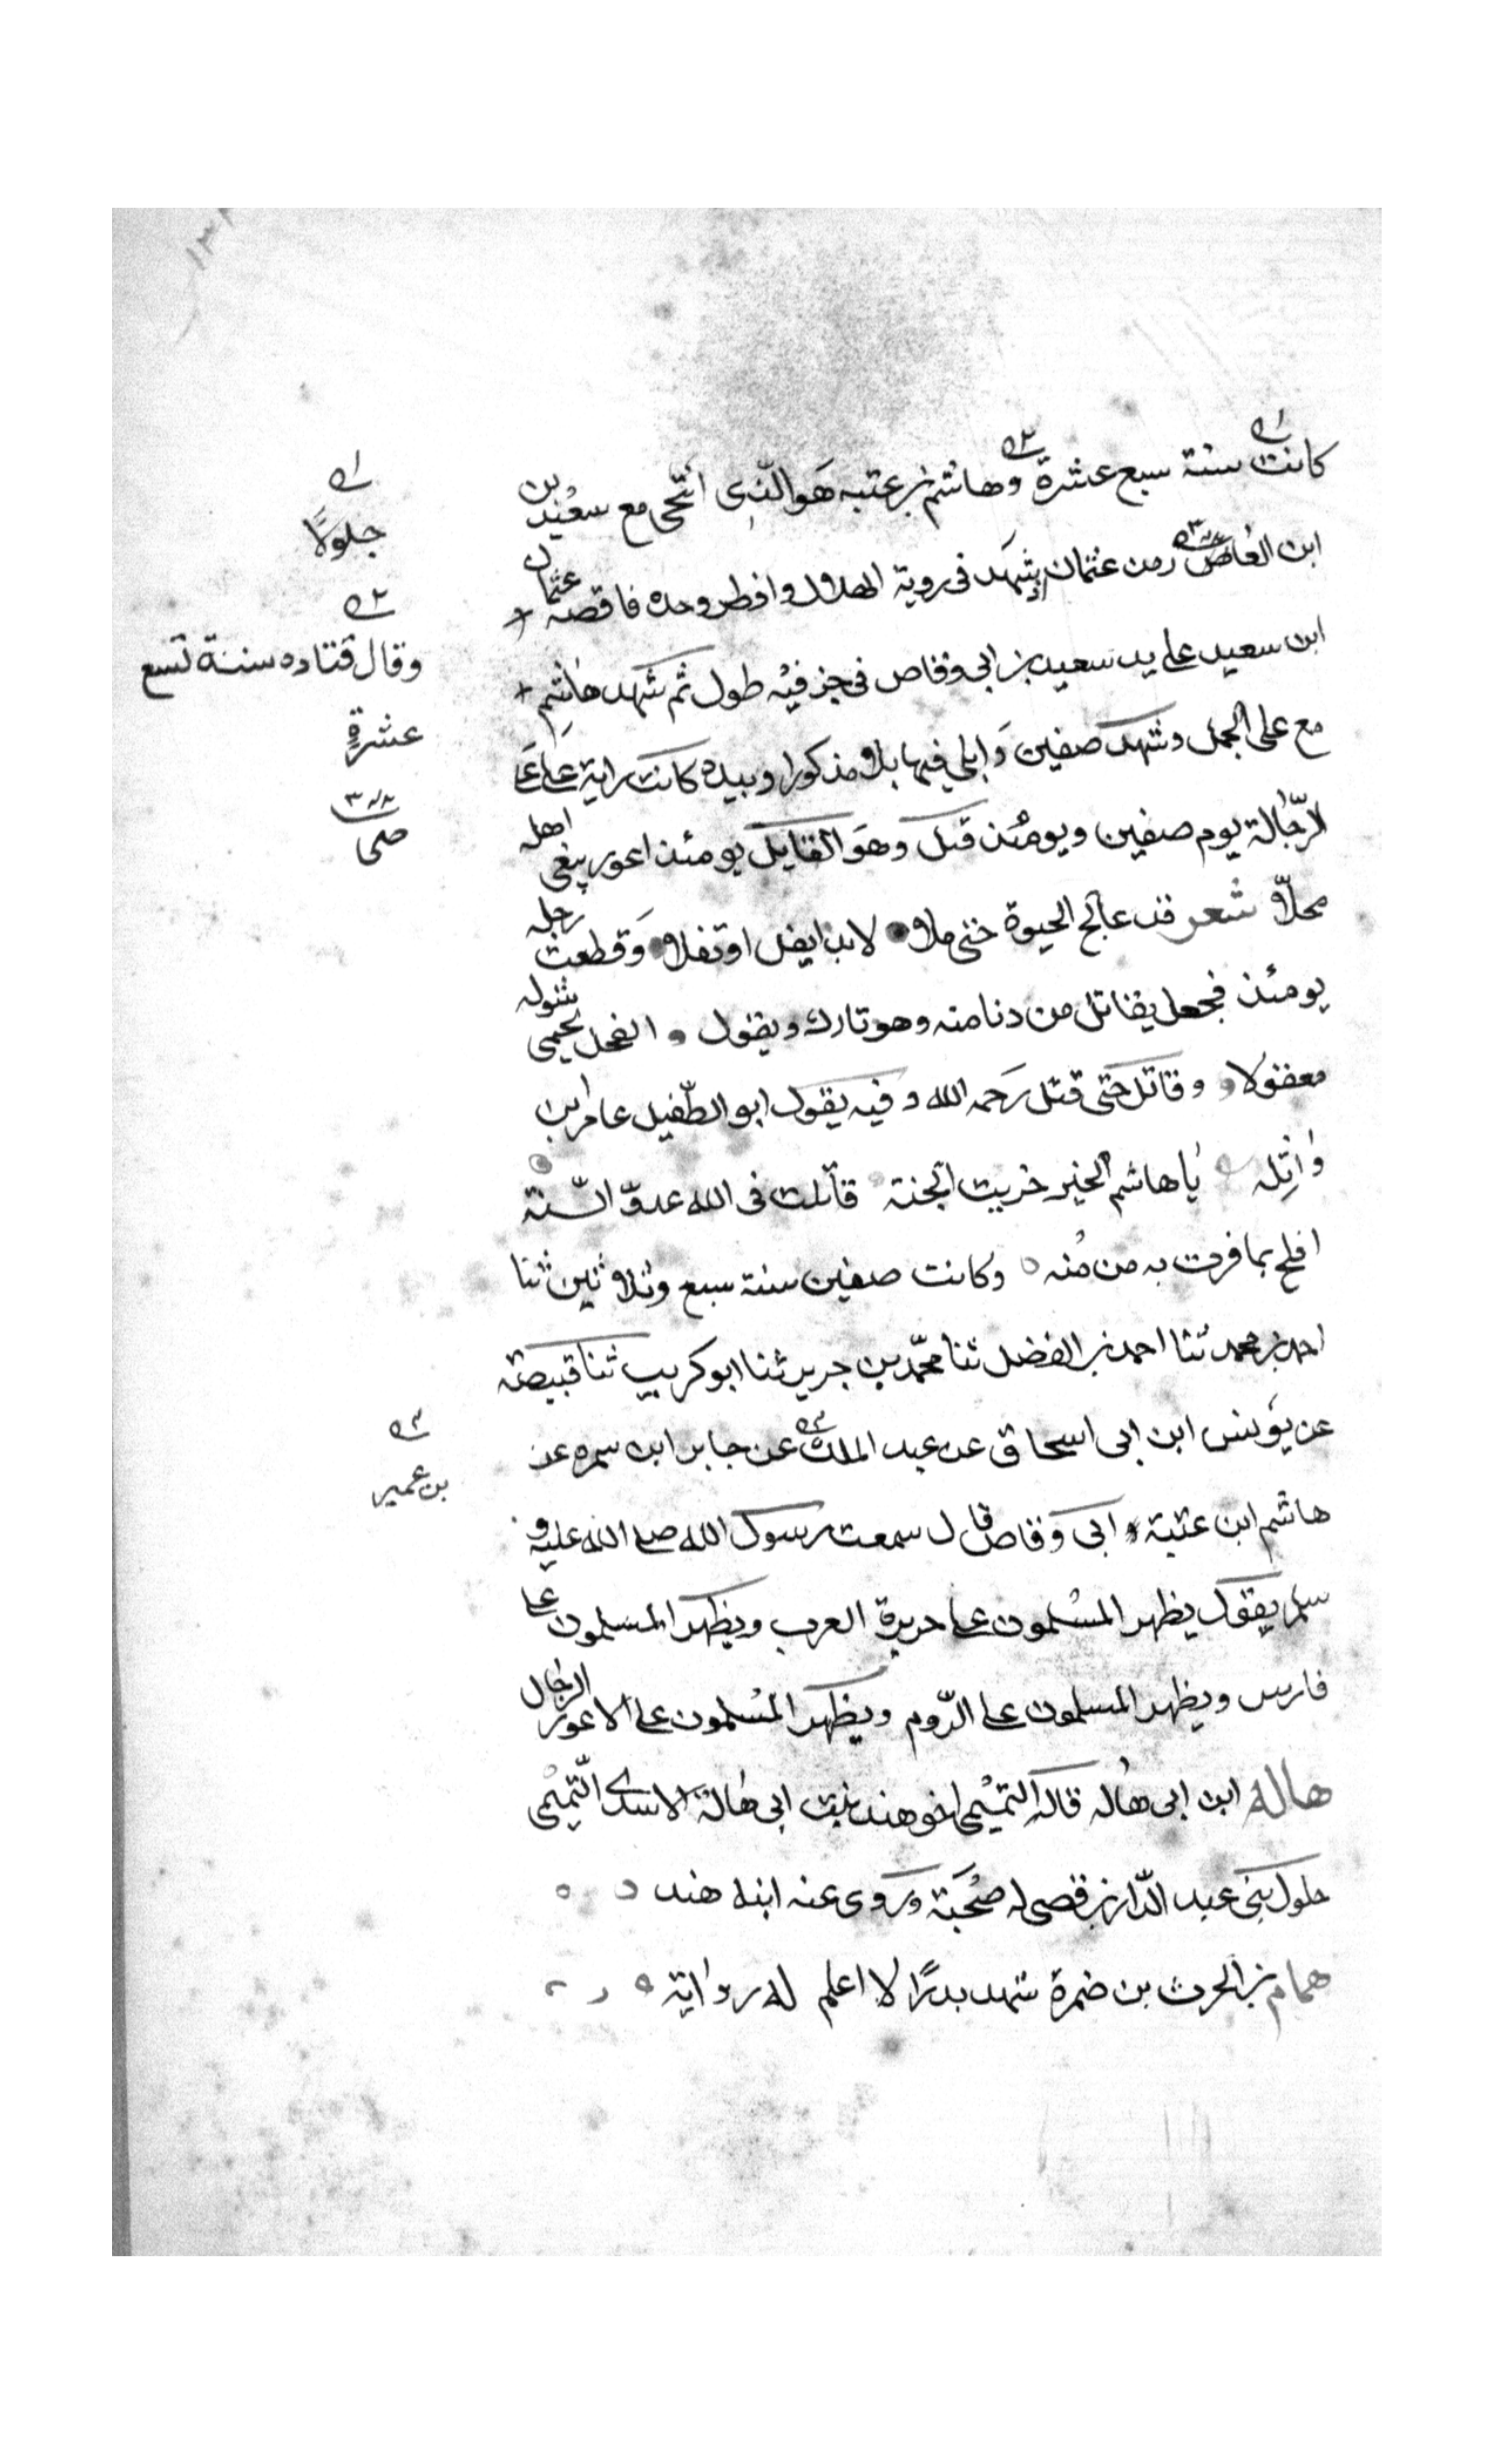 ١٣
كانت سنة سبع عشرة وهاشم بن عتبه هو الذى انتحى مع سعيد بن
ابن العاص زمن عثمان اذ شهد فى روية الهلال وافطر وحده فاقصه عثمان
ابن سعيد على يد سعيد بن ابى وقاص فى خبر فيه طول ثم شهد هاشم
مع على الجمل وشهد صفين وابلى فيها بلاء مذكورا وبيده كانت راية على على
الرجالة يوم صفين ويومئذ قتل وهو القايل يومئذ اعور يبغى اهله
محلا شعر قد عالج الحيوة حتى ملا لابد ان يفل او يفلا وقطعت رجله
يومئذ فجعل يقاتل من دنا منه وهو تارك ويقول الفحل يحمى شوله
معقولا وقاتل حتى قتل رحمه الله وفيه يقول ابو الطفيل عامر ابن
واثله يا هاشم الخير خريت الجنة قاتلت فى الله عدو السنة
افلح بما فزت به من منه وكانت صفين سنة سبع وثلاثين ثنا
احمد بن محمد ثنا احمد بن الفضل ثنا محمد بن جرير ثنا ابو كريب ثنا قبيصة
عن يونس ابن ابى اسحاق عن عبد الملك عن جابر ابن سمره عن
هاشم ابن عتبة ابى وقاص قال سمعت رسول الله صلى الله عليه و
سلم يقول يظهر المسلمون على جزيرة العرب ويظهر المسلمون على
فارس ويظهر المسلمون على الروم ويظهر المسلمون على الاعور الدجال
هاله ابن ابى هاله قاله التميمى اخو هند بنت ابى هالة الاسدى التميمى
حلول بنى عبد الدار بن قصى له صحبة وروى عنه ابنه هند
همام بن الحرث بن ضمرة شهد بدرا لا اعلم له رواية
جلولا
وقال قتاده سنة تسع
عشرة
بن عمير